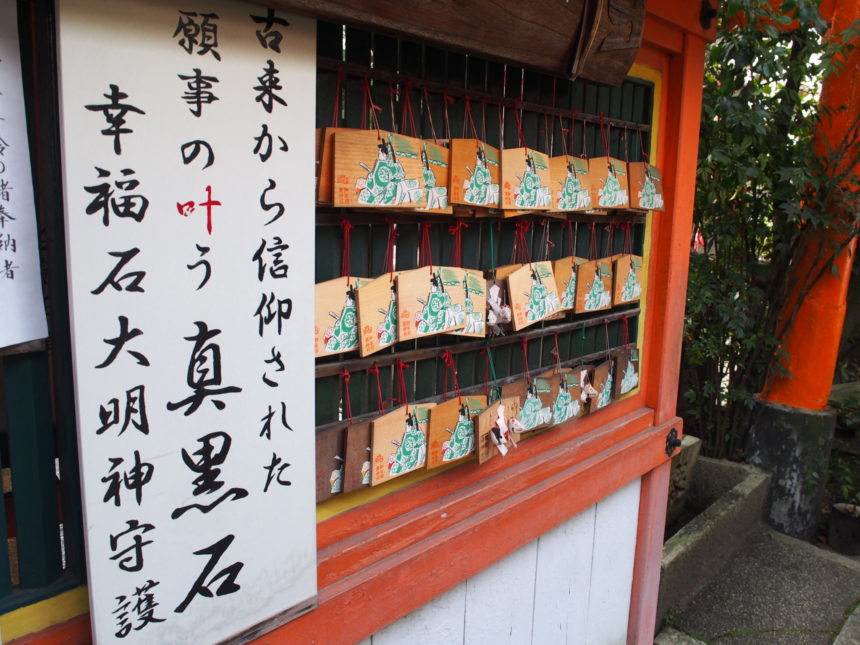 古来から信仰された
願事の叶う真黒石
幸福石大明神守護
の諸奉納者